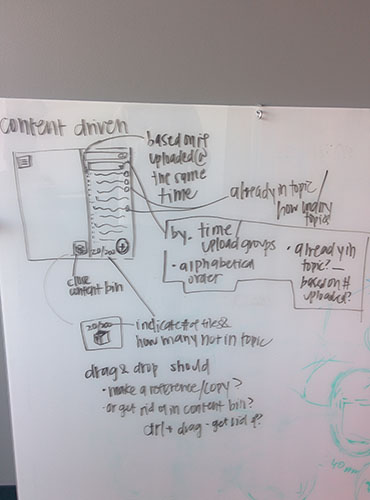 content driven
based on if
uploaded @
the same
time
already in topic/
how many
topics
by. time/
upload groups
• alphabetical
order
• already in
topic? —
based on #
uploaded?
20/200
close
content bin
20/200
indicate # of files &
how many not in topic
drag & drop should
• make a reference/copy?
• or get rid of in content bin?
ctrl + drag - get rid of?